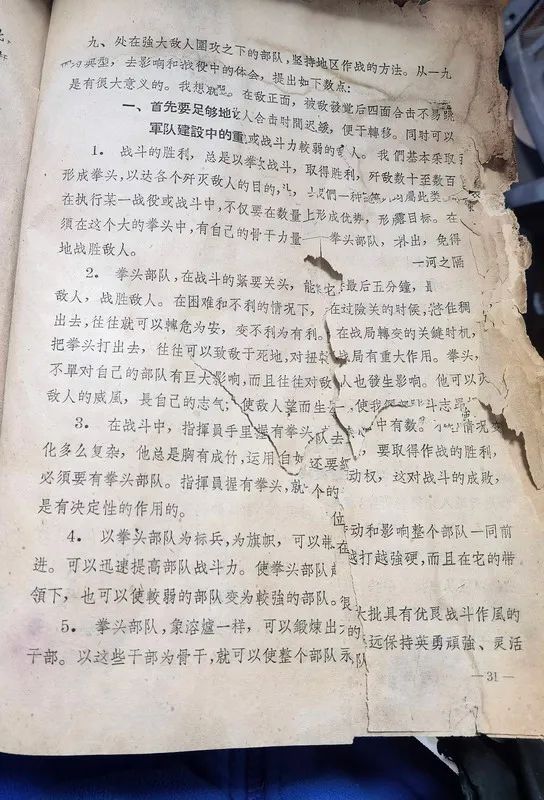 九、处在強大敌人圍攻之下的部队，坚持地区作战的方法。从一九
典型，去影响和战役中的体会，提出如下数点：
是有很大意义的。我想就。在敌正面，被敌發覚后四面合击不易跳
一、首先要足够地 人合击时間迟緩，便于轉移。同时可以
軍队建設中的重 或战斗力較弱的 人。我們基本采取
1．战斗的胜利，总是以拳 战斗，取得胜利，歼敌数十至数百
形成拳头，以达各个歼灭敌人的目的， 們一种 属此类
在执行某一战役或战斗中，不仅要在数量上形成优势，形 露目标。在
須在这个大的拳头中，有自己的骨干力量——拳头部队， 出，免得
地战胜敌人。 一河之隔
2．拳头部队，在战斗的紧要关头，能 它 最后五分鐘，
敌人，战胜敌人。在困难和不利的情况下， 在过險关的时候，
出去，往往就可以轉危为安，变不利为有利。在战局轉变的关鍵时机，
把拳头打出去，往往可以致敌于死地，对扭 战局有重大作用。拳头，
不單对自己的部队有巨大影响，而且往往对敌人也發生影响。他可以
敌人的威風，長自己的志气；使敌人望而生 ，使我 斗志
3．在战斗中，指揮員手里握有拳头 队去 中有数。 情况变
化多么复杂，他总是胸有成竹，运用自如 还要 ，要取得作战的胜利，
必須要有拳头部队。指揮員握有拳头，就 个的 动权，这对战斗的成敗，
是有决定性的作用的。 位
4．以拳头部队为标兵，为旗帜，可以带 动和影响整个部队一同前
进。可以迅速提高部队战斗力。使拳头部队 越打越強硬，而且在它的带
領下，也可以使較弱的部队变为較強的部队。 很
5．拳头部队，象溶爐一样，可以鍛煉出 大批具有优良战斗作風的
干部。以这些干部为骨干，就可以使整个部队永远保持英勇頑強、灵活
队
— 31 —